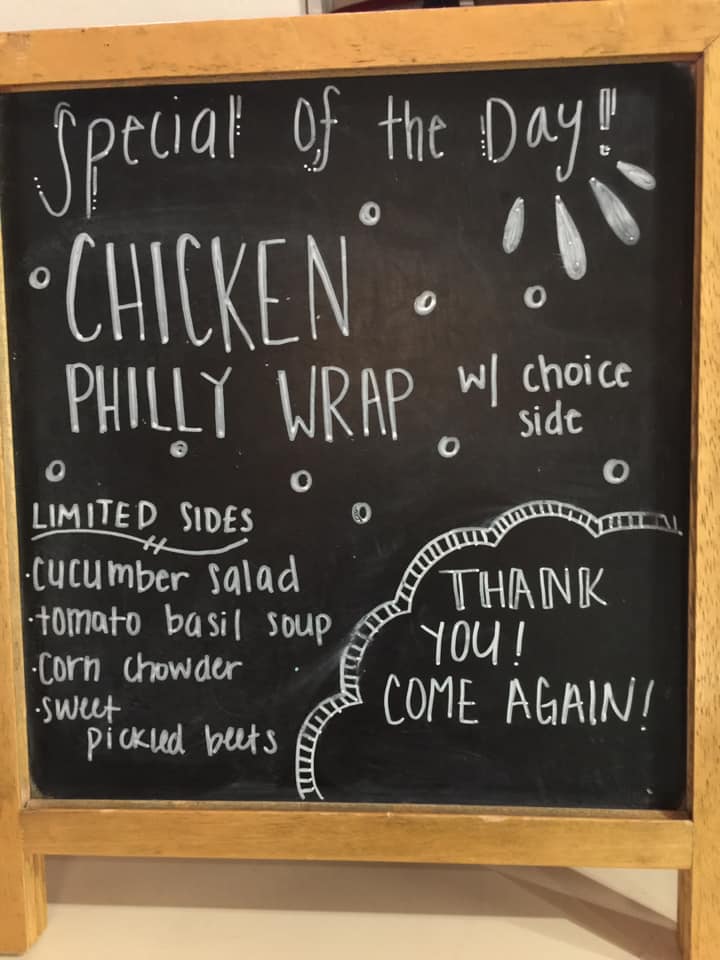 Special of the Day!
CHICKEN
PHILLY WRAP w/ choice
side
LIMITED SIDES
·cucumber salad
·tomato basil soup
·corn chowder
·sweet
pickled beets
THANK
YOU!
COME AGAIN!